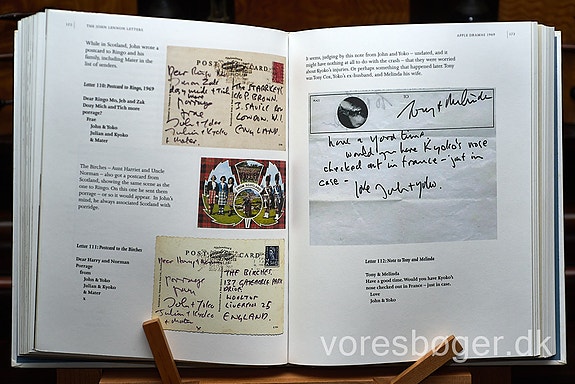 172 THE JOHN LENNON LETTERS
While in Scotland, John wrote a
postcard to Ringo and his
family, including Mater in the
list of senders.
Letter 110: Postcard to Ringo, 1969
Dear Ringo Mo, Jeb and Zak
Dory Mich and Tich more
porrage?
Frae
John & Yoko
Julian and Kyoko
& Mater
POST CARD
Dear Ringo Mo
more
porrage
frae
John + Yoko
Julian + Kyoko
+ mater.
THE STARKEYS
C/O P. BROWN.
3. SAVILE ROW
LONDON. W.1.
ENGLAND.
The Birches – Aunt Harriet and Uncle
Norman – also got a postcard from
Scotland, showing the same scene as the
one to Ringo. On this one he sent them
porrage – or so it would appear. In John's
mind, he always associated Scotland with
porridge.
Letter 111: Postcard to the Birches
Dear Harry and Norman
Porrage
from
John & Yoko
Julian & Kyoko
& Mater
POST CARD
porrage
from
John + Yoko
Julian + Kyoko
+ mater
THE BIRCHES
137 GATEACRE PARK
DRIVE.
WOOLTON
LIVERPOOL 25
ENGLAND.
APPLE DRAMAS 1969 173
It seems, judging by this note from John and Yoko – undated, and it
might have nothing at all to do with the crash – that they were worried
about Kyoko's injuries. Or perhaps something that happened later. Tony
was Tony Cox, Yoko's ex-husband, and Melinda his wife.
TO
Tony & Melinda
have a good time
would you have Kyoko's nose
checked out in france – just in
case –
love John + Yoko.
Letter 112: Note to Tony and Melinda
Tony & Melinda
Have a good time. Would you have Kyoko's
nose checked out in France – just in case.
Love
John & Yoko
voresboger.dk